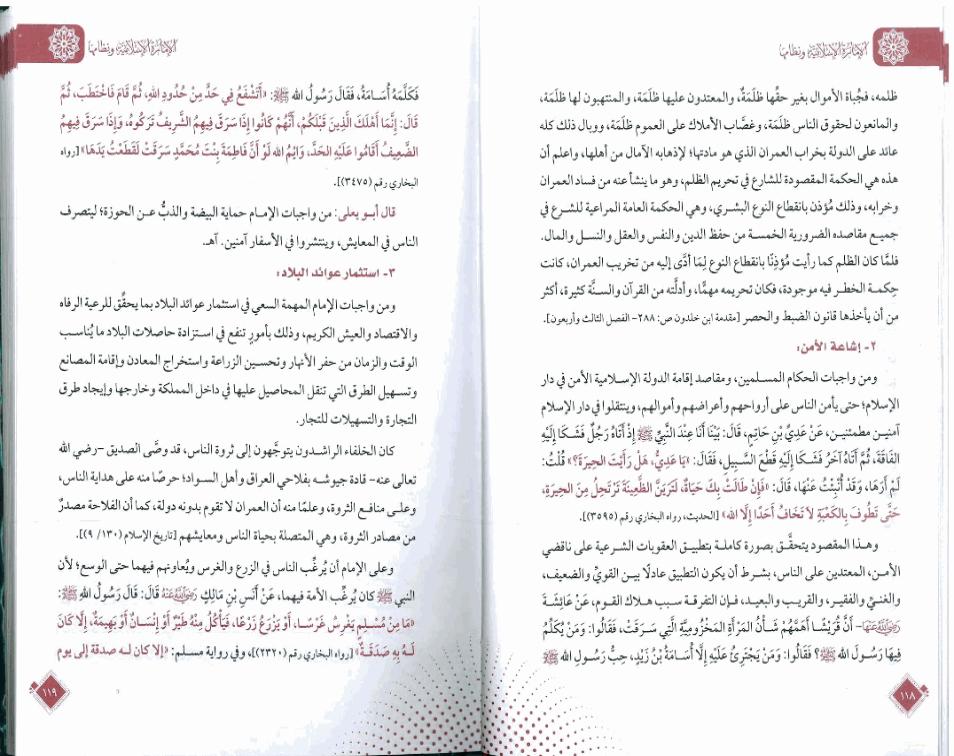 الإمارة الإسلامية ونظامها
ظلمه، فجُباة الأموال بغير حقُّها ظلَمَةٌ، والمعتدون عليها ظلَمَة، والمنتهبون لها ظلَمَة،
والمانعون لحقوق الناس ظلَمَة، وغصَّاب الأملاك على العموم ظلَمَة، ووبال ذلك كله
عائد على الدولة بخراب العمران الذي هو مادتها؛ لإذهابه الآمال من أهلها، واعلم أن
هذه هي الحكمة المقصودة للشارع في تحريم الظلم، وهو ما ينشأ عنه من فساد العمران
وخرابه، وذلك مُؤذن بانقطاع النوع البشري، وهي الحكمة العامة المراعية للشرع في
جميع مقاصده الضرورية الخمسة من حفظ الدين والنفس والعقل والنسل والمال.
فلمَّا كان الظلم كما رأيت مُؤْذِنًا بانقطاع النوع لِمَا أدَّى إليه من تخريب العمران، كانت
حِكمة الخطر فيه موجودة، فكان تحريمه مهمًّا، وأدلَّته من القرآن والسنَّة كثيرة، أكثر
من أن يأخذها قانون الضبط والحصر [مقدمة ابن خلدون ص: ٢٨٨- الفصل الثالث وأربعون].
٢- إشاعة الأمن:
ومن واجبات الحكام المسلمين، ومقاصد إقامة الدولة الإسلامية الأمن في دار
الإسلام؛ حتى يأمن الناس على أرواحهم وأعراضهم وأموالهم، وينتقلوا في دار الإسلام
آمنين مطمئنين، عَنْ عَدِيِّ بْنِ حَاتِمٍ، قَالَ: بَيْنَا أَنَا عِنْدَ النَّبِيِّ ﷺ إِذْ أَتَاهُ رَجُلٌ فَشَكَا إِلَيْهِ
الفَاقَةَ، ثُمَّ أَتَاهُ آخَرُ فَشَكَا إِلَيْهِ قَطْعَ السَّبِيلِ، فَقَالَ: «يَا عَدِيُّ، هَلْ رَأَيْتَ الحِيرَةَ؟» قُلْتُ:
لَمْ أَرَهَا، وَقَدْ أُنْبِئْتُ عَنْهَا، قَالَ: «فَإِنْ طَالَتْ بِكَ حَيَاةٌ، لَتَرَيَنَّ الظَّعِينَةَ تَرْتَحِلُ مِنَ الحِيرَةِ،
حَتَّى تَطُوفَ بِالكَعْبَةِ لاَ تَخَافُ أَحَدًا إِلَّا الله» [الحديث، رواه البخاري رقم (٣٥٩٥)].
وهـذا المقصود يتحقَّـق بصورة كاملـة بتطبيـق العقوبات الشرعية على ناقضي
الأمـن، المعتدين على الناس، بشرط أن يكون التطبيق عادلًا بين القويِّ والضعيف،
والغنـيِّ والفقيـر، والقريب والبعيـد، فـإن التفرقـة سبب هـلاك القوم، عَنْ عَائِشَةَ
رَضِيَ اللَّهُ عَنْهَا- أَنَّ قُرَيْشًا أَهَمَّهُمْ شَأْنُ المَرْأَةِ المَخْزُومِيَّةِ الَّتِي سَرَقَتْ، فَقَالُوا: وَمَنْ يُكَلِّمُ
فِيهَا رَسُولَ الله ﷺ؟ فَقَالُوا: وَمَنْ يَجْتَرِئُ عَلَيْهِ إِلَّا أُسَامَةُ بْنُ زَيْدٍ، حِبُّ رَسُولِ الله ﷺ
١١٨
الإمارة الإسلامية ونظامها
فَكَلَّمَهُ أُسَامَةُ، فَقَالَ رَسُولُ الله ﷺ: «أَتَشْفَعُ فِي حَدٍّ مِنْ حُدُودِ اللهِ، ثُمَّ قَامَ فَاخْتَطَبَ، ثُمَّ
قَالَ: إِنَّمَا أَهْلَكَ الَّذِينَ قَبْلَكُمْ، أَنَّهُمْ كَانُوا إِذَا سَرَقَ فِيهِمُ الشَّرِيفُ تَرَكُوهُ، وَإِذَا سَرَقَ فِيهِمُ
الضَّعِيفُ أَقَامُوا عَلَيْهِ الحَدَّ، وَايْمُ الله لَوْ أَنَّ فَاطِمَةَ بِنْتَ مُحَمَّدٍ سَرَقَتْ لَقَطَعْتُ يَدَهَا» [رواه
البخاري رقم (٣٤٧٥)].
قال أبـو يعلى: من واجبات الإمـام حماية البيضة والذبُّ عـن الحوزة؛ ليتصرف
الناس في المعايش، وينتشروا في الأسفار آمنين. آهـ.
٣- استثمار عوائد البلاد:
ومن واجبات الإمام المهمة السعي في استثمار عوائد البلاد بما يحقِّق للرعية الرفاه
والاقتصاد والعيش الكريم، وذلك بأمورٍ تنفع في استـزادة حاصلات البلاد ما يُناسب
الوقت والزمان من حفر الأنهار وتحسين الزراعة واستخراج المعادن وإقامة المصانع
وتسهيل الطرق التي تنقل المحاصيل عليها في داخل المملكة وخارجها وإيجاد طرق
التجارة والتسهيلات للتجار.
كان الخلفاء الراشدون يتوجَّهون إلى ثروة الناس، قد وصَّى الصديق -رضي الله
تعالى عنه- قادة جيوشه بفلاحي العراق وأهل السواد؛ حرصًا منه على هداية الناس،
وعلـى منافـع الثروة، وعلمًا منه أن العمران لا تقوم بدونه دولة، كما أن الفلاحة مصدرٌ
من مصادر الثروة، وهي المتصلة بحياة الناس ومعايشهم [تاريخ الإسلام (١٣٠/ ٩)].
وعلى الإمام أن يُرغِّب الناس في الزرع والغرس ويُعاونهم فيهما حتى الوسع؛ لأن
النبي ﷺ كان يُرغِّب الأمة فيهما، عَنْ أَنَسِ بْنِ مَالِكٍ رَضِيَ اللَّهُ عَنْهُ قَالَ: قَالَ رَسُولُ الله ﷺ:
«مَا مِنْ مُسْلِمٍ يَغْرِسُ غَرْسًا، أَوْ يَزْرَعُ زَرْعًا، فَيَأْكُلُ مِنْهُ طَيْرٌ أَوْ إِنْسَانٌ أَوْ بَهِيمَةٌ، إِلَّا كَانَ
لَهُ بِهِ صَدَقَةٌ» [رواه البخاري رقم (٢٣٢٠)]، وفي رواية مسلم: «إلا كان لـه صدقة إلى يوم
١١٩